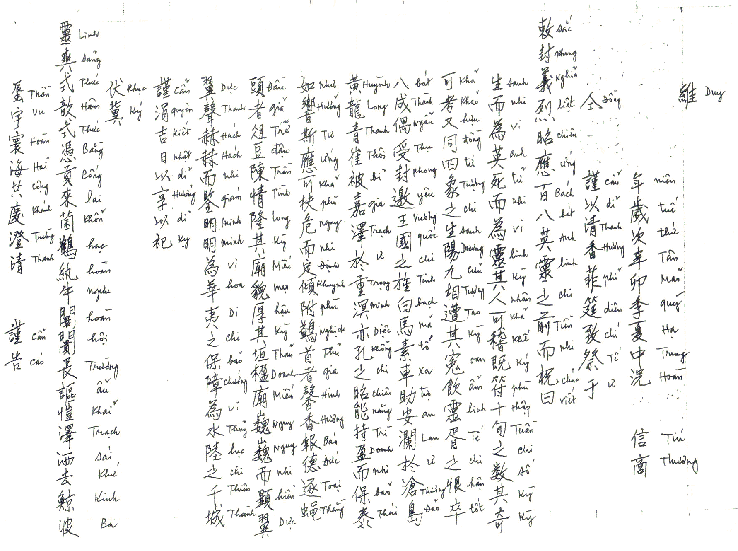 維
Duy
年歲次辛卯季夏中浣 信商
niên tuế thứ Tân Mão quý Hạ Trung Hoán Tín Thương
仝謹以清香菲筵致祭于
Đồng cẩn dĩ Thanh Hương phỉ diên chí Tế vu
敕封義烈昭應百八英靈之前而祝曰
Sắc phong Nghĩa liệt chiêu ứng Bách bát Anh linh chi Tiền nhi chúc viết
生而為英死而為靈其人可稽既符十旬之數其奇
Sanh nhi vi Anh tử nhi vi linh Kỳ nhân khả Kê Ký phù thập Tuần chi số Kỳ Kỳ
可考又同四象之生陽九相遭其冤飲靈胥之恨卒
Khả Khảo hựu đồng Tứ Tượng chi Sanh Dương Cửu Tương Tao Kỳ oan ẩm linh chi hận tốt
八成偶受封邀王國之旌白馬素車助安瀾於滄島
bát Thành ngẫu Thụ phong yêu vương quốc chi Tinh bạch mã tố xa trợ an Lan ư Thương Đảo
黃龍青雀被嘉澤於重溟亦孔之昭能持盈而保泰
Huỳnh Long Thanh bị gia Trạch ư Trọng minh Diệc Khổng chi chiêu năng Trì Doanh nhi bảo Thái
如響斯應可扶危而定傾附鷁首者馨香報德逐蠅
Như Hưởng Tư ứng Khả phù nguy nhi Định Khuynh phụ nghịch Thủ giả Hinh Hương Báo Đức Trục Thằng
頭者俎豆陳情隆其廟貌厚其垣楹廟巍巍而顯翼
Đầu giả Trở đậu Trần Tình long Kỳ Miếu mạo hậu Kỳ Doanh Miếu Nguy Nguy nhi hiển Dực
翼聲赫赫而鑒明明為華夷之保障為水陸之干城
Dực Thanh Hách Hách nhi giám minh minh vi hoa Di chi bảo chướng vi Thủy lục chi Thành
謹涓吉日以享以祀
Cẩn quyên kiết nhật dĩ Hưởng dĩ Kỵ
伏冀
Phục Ký
靈爽式歆式憑賁來菌鶴
Linh Thức Hâm Thức Bằng Lai hạc
長謳愷澤洒去鯨波
Trường ẩu Khải Trạch Sái Khứ Kình Ba
蜃宇寰海共慶澄清 謹告
Thần Vũ Hoàn Hải Cộng Khánh Trừng Thanh Cẩn Cáo